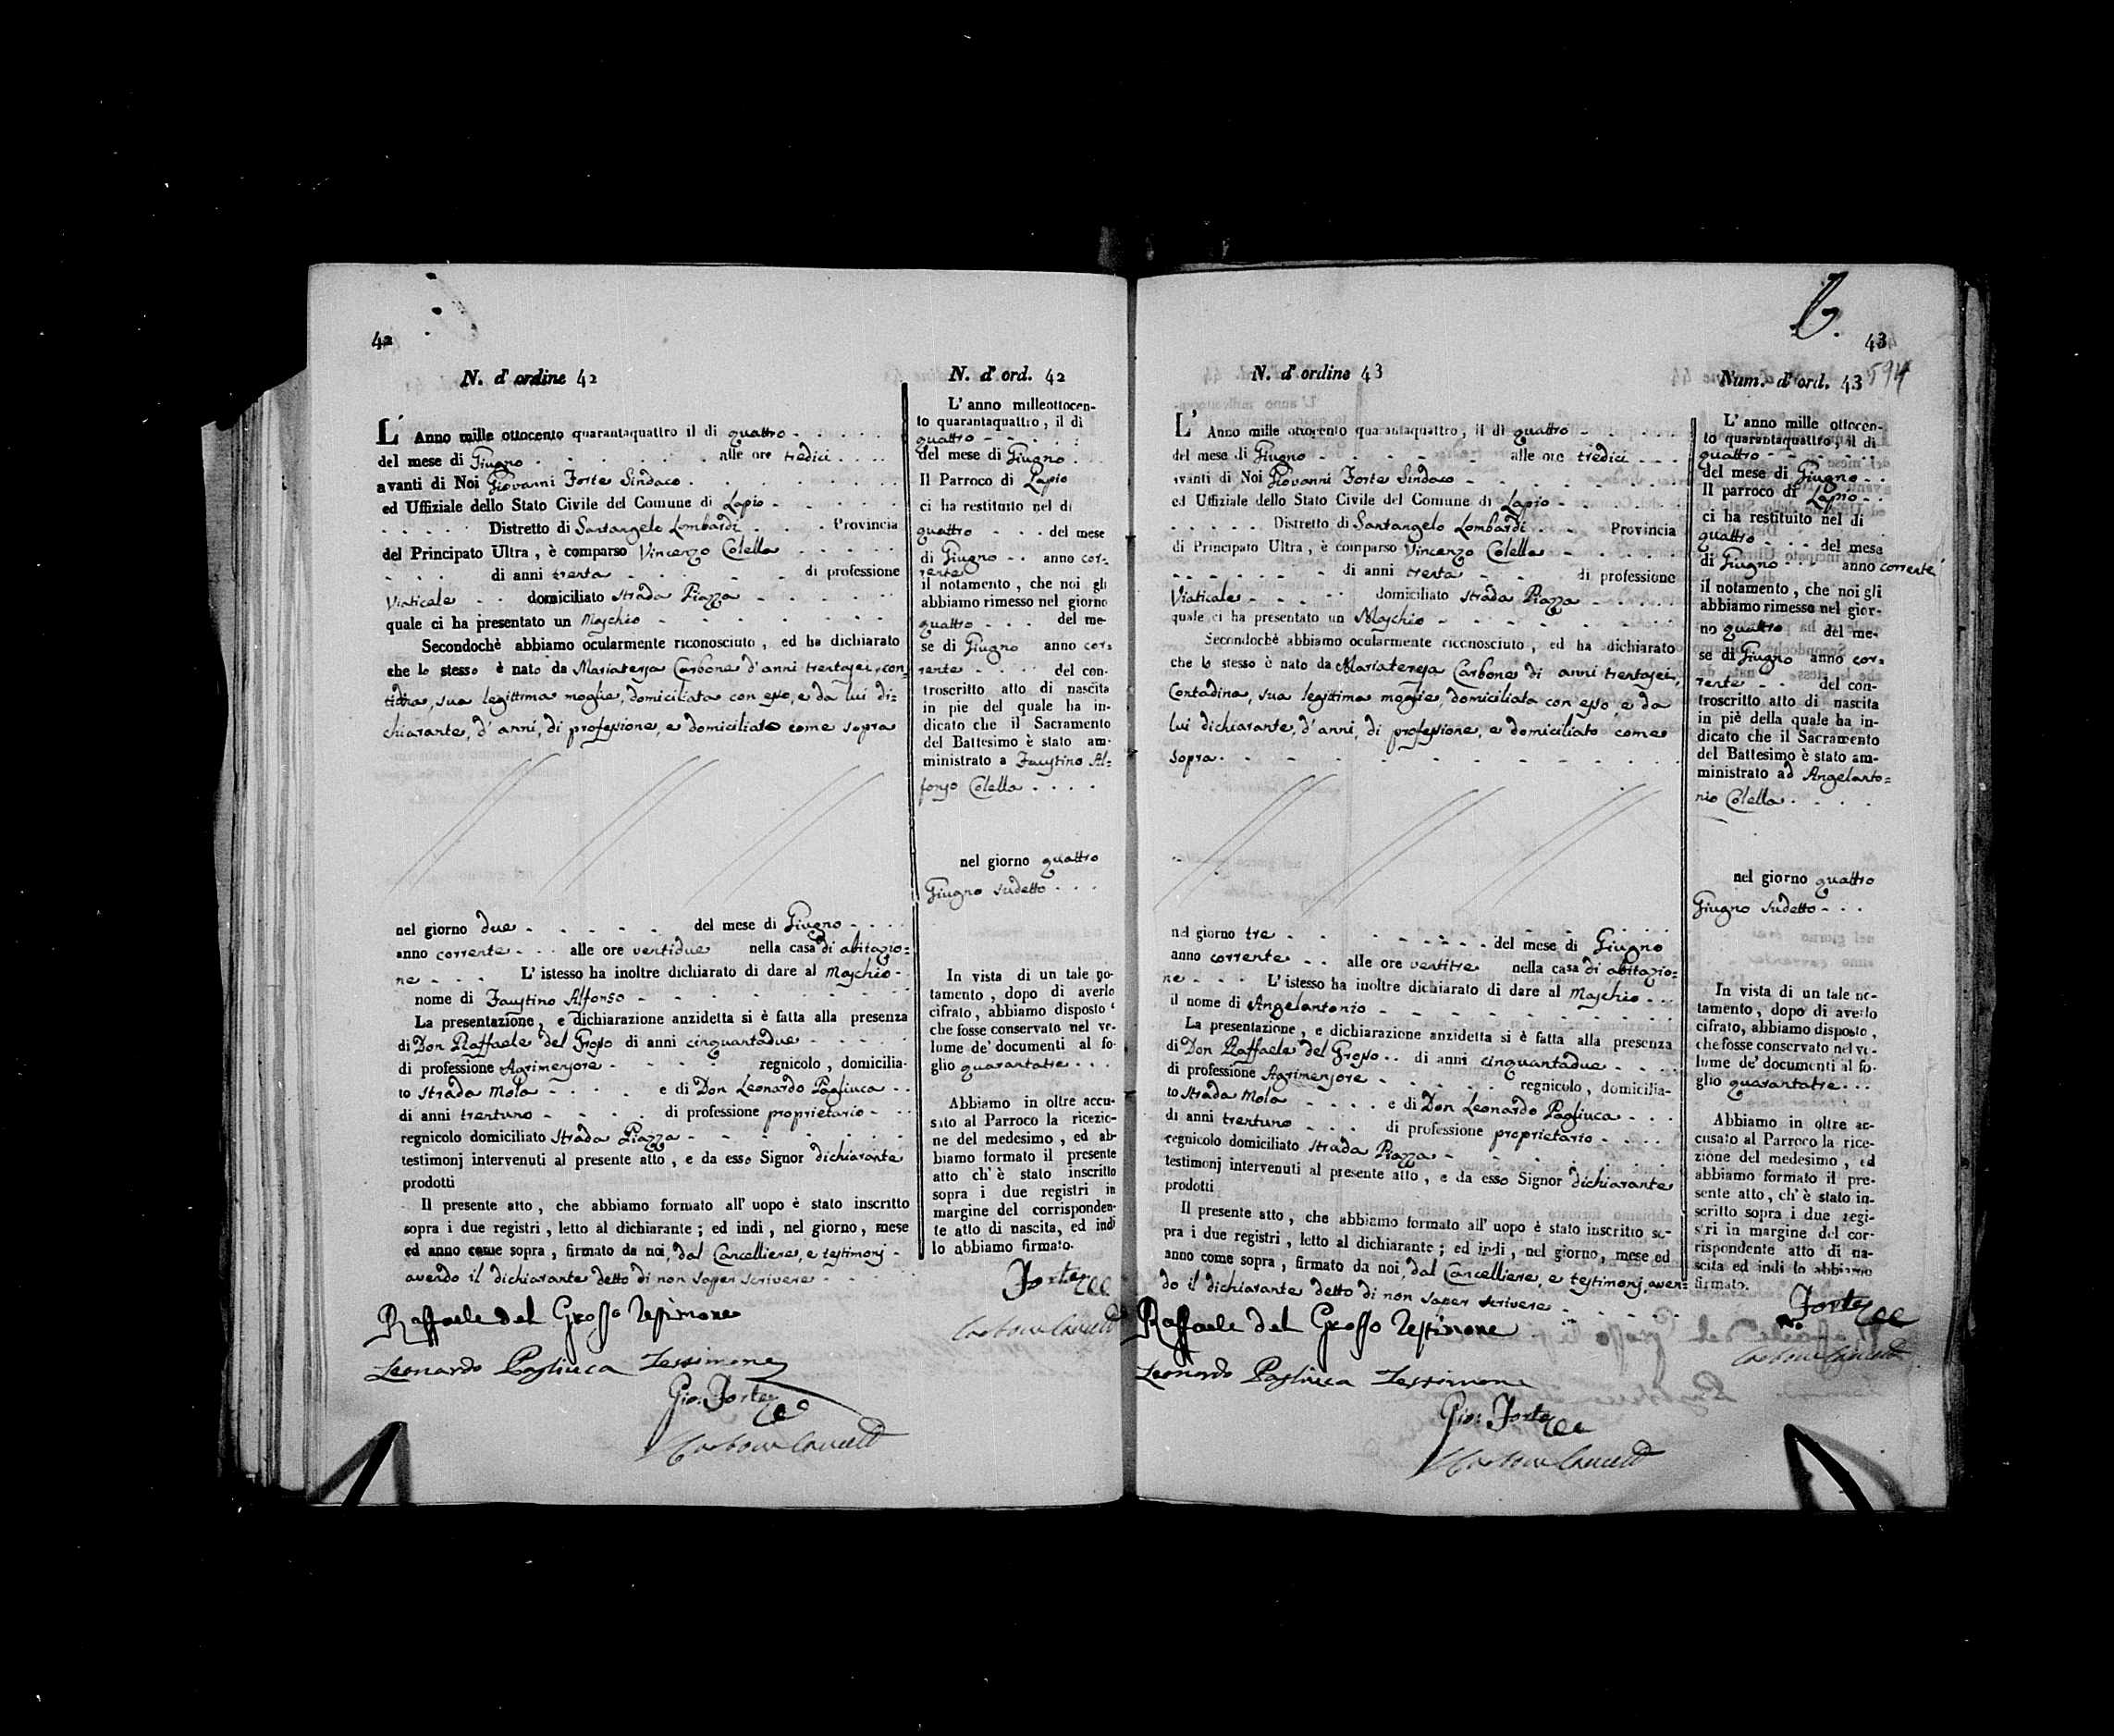 42
N. d' ordine 42
L' Anno mille ottocento quarantaquattro il dì quattro
del mese di Giugno alle ore tredici
avanti di Noi Giovanni Forte Sindaco
ed Uffiziale dello Stato Civile del Comune di Lapio
Distretto di Santangelo Lombardi Provincia
del Principato Ultra, è comparso Vincenzo Colella
di anni trenta di professione
Viaticale domiciliato Strada Piazza
quale ci ha presentato un Maschio
Secondochè abbiamo ocularmente riconosciuto, ed ha dichiarato
che lo stesso è nato da Mariateresa Carbone d'anni trentasei, con=
tadina, sua legittima moglie, domiciliata con esso, e da lui di=
chiarante, d'anni, di professione, e domiciliato come sopra
nel giorno due del mese di Giugno
anno corrente alle ore ventidue nella casa di abitazio=
ne L' istesso ha inoltre dichiarato di dare al Maschio
nome di Faustino Alfonso
La presentazione, e dichiarazione anzidetta si è fatta alla presenza
di Don Raffaele del Grosso di anni cinquantadue
di professione Agrimensore regnicolo, domicilia-
to Strada Mola e di Don Leonardo Pagliuca
di anni trentuno di professione proprietario
regnicolo domiciliato Strada Piazza
testimonj intervenuti al presente atto, e da esso Signor dichiarante
prodotti
Il presente atto, che abbiamo formato all' uopo è stato inscritto
sopra i due registri, letto al dichiarante; ed indi, nel giorno, mese
ed anno come sopra, firmato da noi, dal Cancelliere, e testimonj
avendo il dichiarante detto di non saper scrivere
Raffaele del Grosso Testimone
Leonardo Pagliuca Testimone
Gio: Forte
N. d' ord. 42
L' anno milleottocen-
to quarantaquattro, il dì
quattro
del mese di Giugno
Il Parroco di Lapio
ci ha restituito nel dì
quattro del mese
di Giugno anno cor=
rente
il notamento, che noi gli
abbiamo rimesso nel giorno
quattro del me-
se di Giugno anno cor=
rente del con-
troscritto atto di nascita
in pie del quale ha in-
dicato che il Sacramento
del Battesimo è stato am-
ministrato a Faustino Al=
fonso Colella
nel giorno quattro
Giugno sudetto
In vista di un tale no-
tamento, dopo di averlo
cifrato, abbiamo disposto
che fosse conservato nel vo-
lume de' documenti al fo-
glio quarantatre
Abbiamo in oltre accu-
sato al Parroco la ricezio-
ne del medesimo, ed ab-
biamo formato il presente
atto ch' è stato inscritto
sopra i due registri in
margine del corrisponden-
te atto di nascita, ed indi
lo abbiamo firmato.
Forte
43
594
N. d' ordine 43
L' Anno mille ottocento quarantaquattro, il dì quattro
del mese di Giugno alle ore tredici
avanti di Noi Giovanni Forte Sindaco
ed Uffiziale dello Stato Civile del Comune di Lapio
Distretto di Santangelo Lombardi Provincia
di Principato Ultra, è comparso Vincenzo Colella
di anni trenta di professione
Viaticale domiciliato Strada Piazza
quale ci ha presentato un Maschio
Secondochè abbiamo ocularmente riconosciuto, ed ha dichiarato
che lo stesso è nato da Mariateresa Carbone di anni trentasei,
Contadina, sua legittima moglie, domiciliata con esso, e da
lui dichiarante, d'anni, di professione, e domiciliato come
sopra
nel giorno tre del mese di Giugno
anno corrente alle ore ventitre nella casa di abitazio=
ne L' istesso ha inoltre dichiarato di dare al Maschio
il nome di Angelantonio
La presentazione, e dichiarazione anzidetta si è fatta alla presenza
di Don Raffaele del Grosso di anni cinquantadue
di professione Agrimensore regnicolo, domicilia-
to Strada Mola e di Don Leonardo Pagliuca
di anni trentuno di professione proprietario
regnicolo domiciliato Strada Piazza
testimonj intervenuti al presente atto, e da esso Signor dichiarante
prodotti
Il presente atto, che abbiamo formato all' uopo è stato inscritto so-
pra i due registri, letto al dichiarante; ed indi, nel giorno, mese ed
anno come sopra, firmato da noi, dal Cancelliere, e testimonj, aven=
do il dichiarante detto di non saper scrivere
Raffaele del Grosso Testimone
Leonardo Pagliuca Testimone
Gio: Forte
Num. d' ord. 43
L' anno mille ottocen-
to quarantaquattro, il dì
quattro
del mese di Giugno
Il parroco di Lapio
ci ha restituito nel dì
quattro del mese
di Giugno anno corrente
il notamento, che noi gli
abbiamo rimesso nel gior-
no quattro del me-
se di Giugno anno cor=
rente del con-
troscritto atto di nascita
in piè della quale ha in-
dicato che il Sacramento
del Battesimo è stato am-
ministrato ad Angelanto=
nio Colella
nel giorno quattro
Giugno sudetto
In vista di un tale no-
tamento, dopo di averlo
cifrato, abbiamo disposto,
che fosse conservato nel vo-
lume de' documenti al fo-
glio quarantatre
Abbiamo in oltre ac-
cusato al Parroco la rice-
zione del medesimo, ed
abbiamo formato il pre-
sente atto, ch' è stato in-
scritto sopra i due regi-
stri in margine del cor-
rispondente atto di na-
scita ed indi lo abbiamo
firmato.
Forte